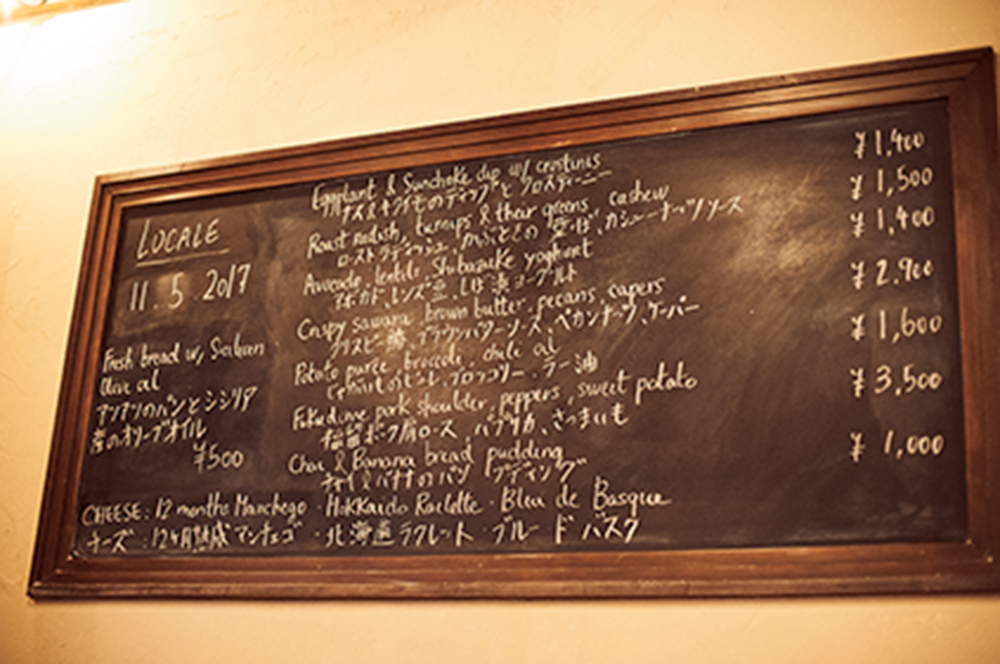 LOCALE
11.5.2017
Fresh bread w/ Sicilian
Olive oil
パンとシシリア
産のオリーブオイル
¥500
Eggplant & Sunchoke dip w/ crostinis ¥1,400
ナス&キクイモのディップとクロスティーニー
Roast radish, turnips & their greens cashew ¥1,500
ローストラディッシュ、かぶとその葉っぱ、カシューナッツソース
Avocado, lentils, Shibazuke yoghurt ¥1,400
アボカド、レンズ豆、しば漬ヨーグルト
Crispy sawara, brown butter, pecans, capers ¥2,900
クリスピー鰆、ブラウンバターソース、ペカンナッツ、ケーパー
Potato puree, broccoli, chile oil ¥1,600
じゃがいものピュレ、ブロッコリー、ラー油
Fukudome pork shoulder, peppers, sweet potato ¥3,500
福留ポーク肩ロース、パプリカ、さつまいも
Chai & Banana bread pudding ¥1,000
チャイ&バナナのパン プディング
CHEESE: 12 months Manchego · Hokkaido Raclette · Bleu de Basque
チーズ:12ヶ月熟成マンチェゴ・北海道ラクレット・ブルー ド バスク